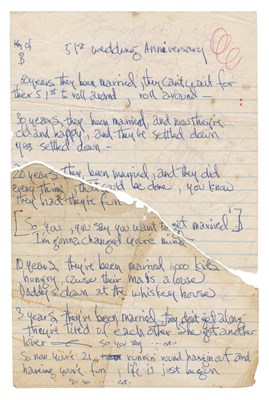 Key of
B
51st wedding Anniversary
50 years, they been married, they cant wait for
their 51st to roll around, roll around —
30 years, they been married, and now they're
old and happy, and they're settled down
yes settled down —
20 years, they been married, and they did
every thing, that could be done, you know
they had they're fun
[So you, you say you want to get married]
I'm gonna change you're mind
10 years, they've been married, 1000 kids
hungry, cause their mama's a louse
Daddy's down at the whiskey house
3 years, they've been married, they don't get along
they're tired of each other she got another
lover — So you say ... etc.
So now you're 21, runnin round hangin out and
having you're fun, life is just begun
So you ... etc.